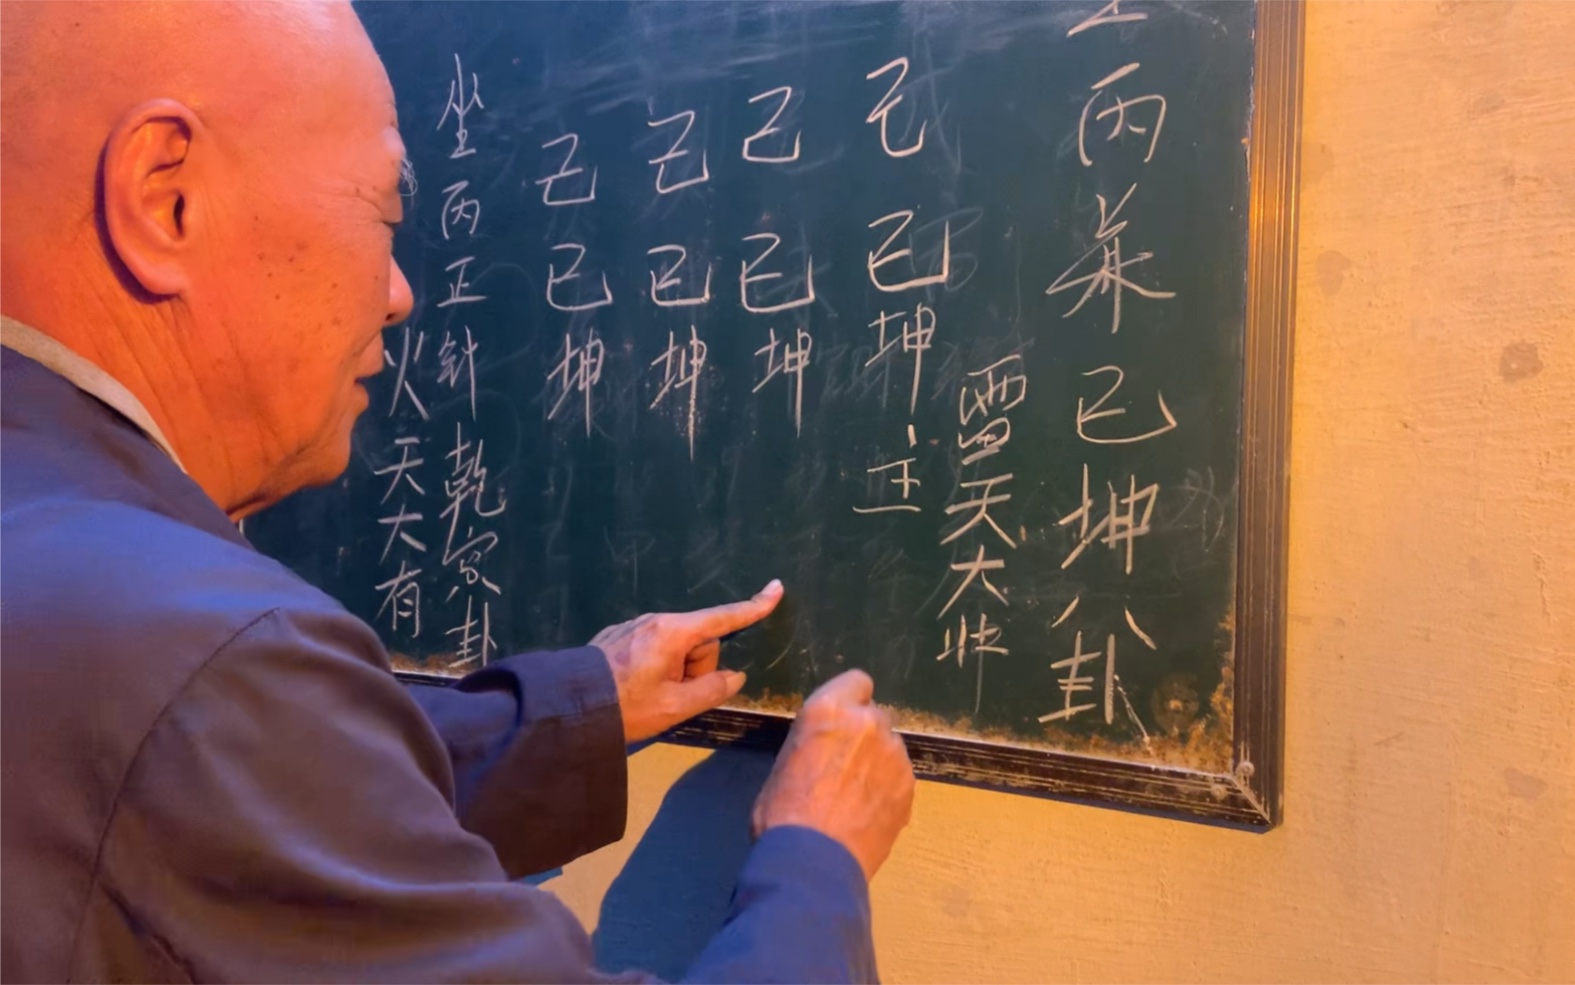 丙兼巳坤八卦
雷天大壮
己巳坤主
己巳坤
己巳坤
己巳坤
坐丙正针乾宫卦
火天大有